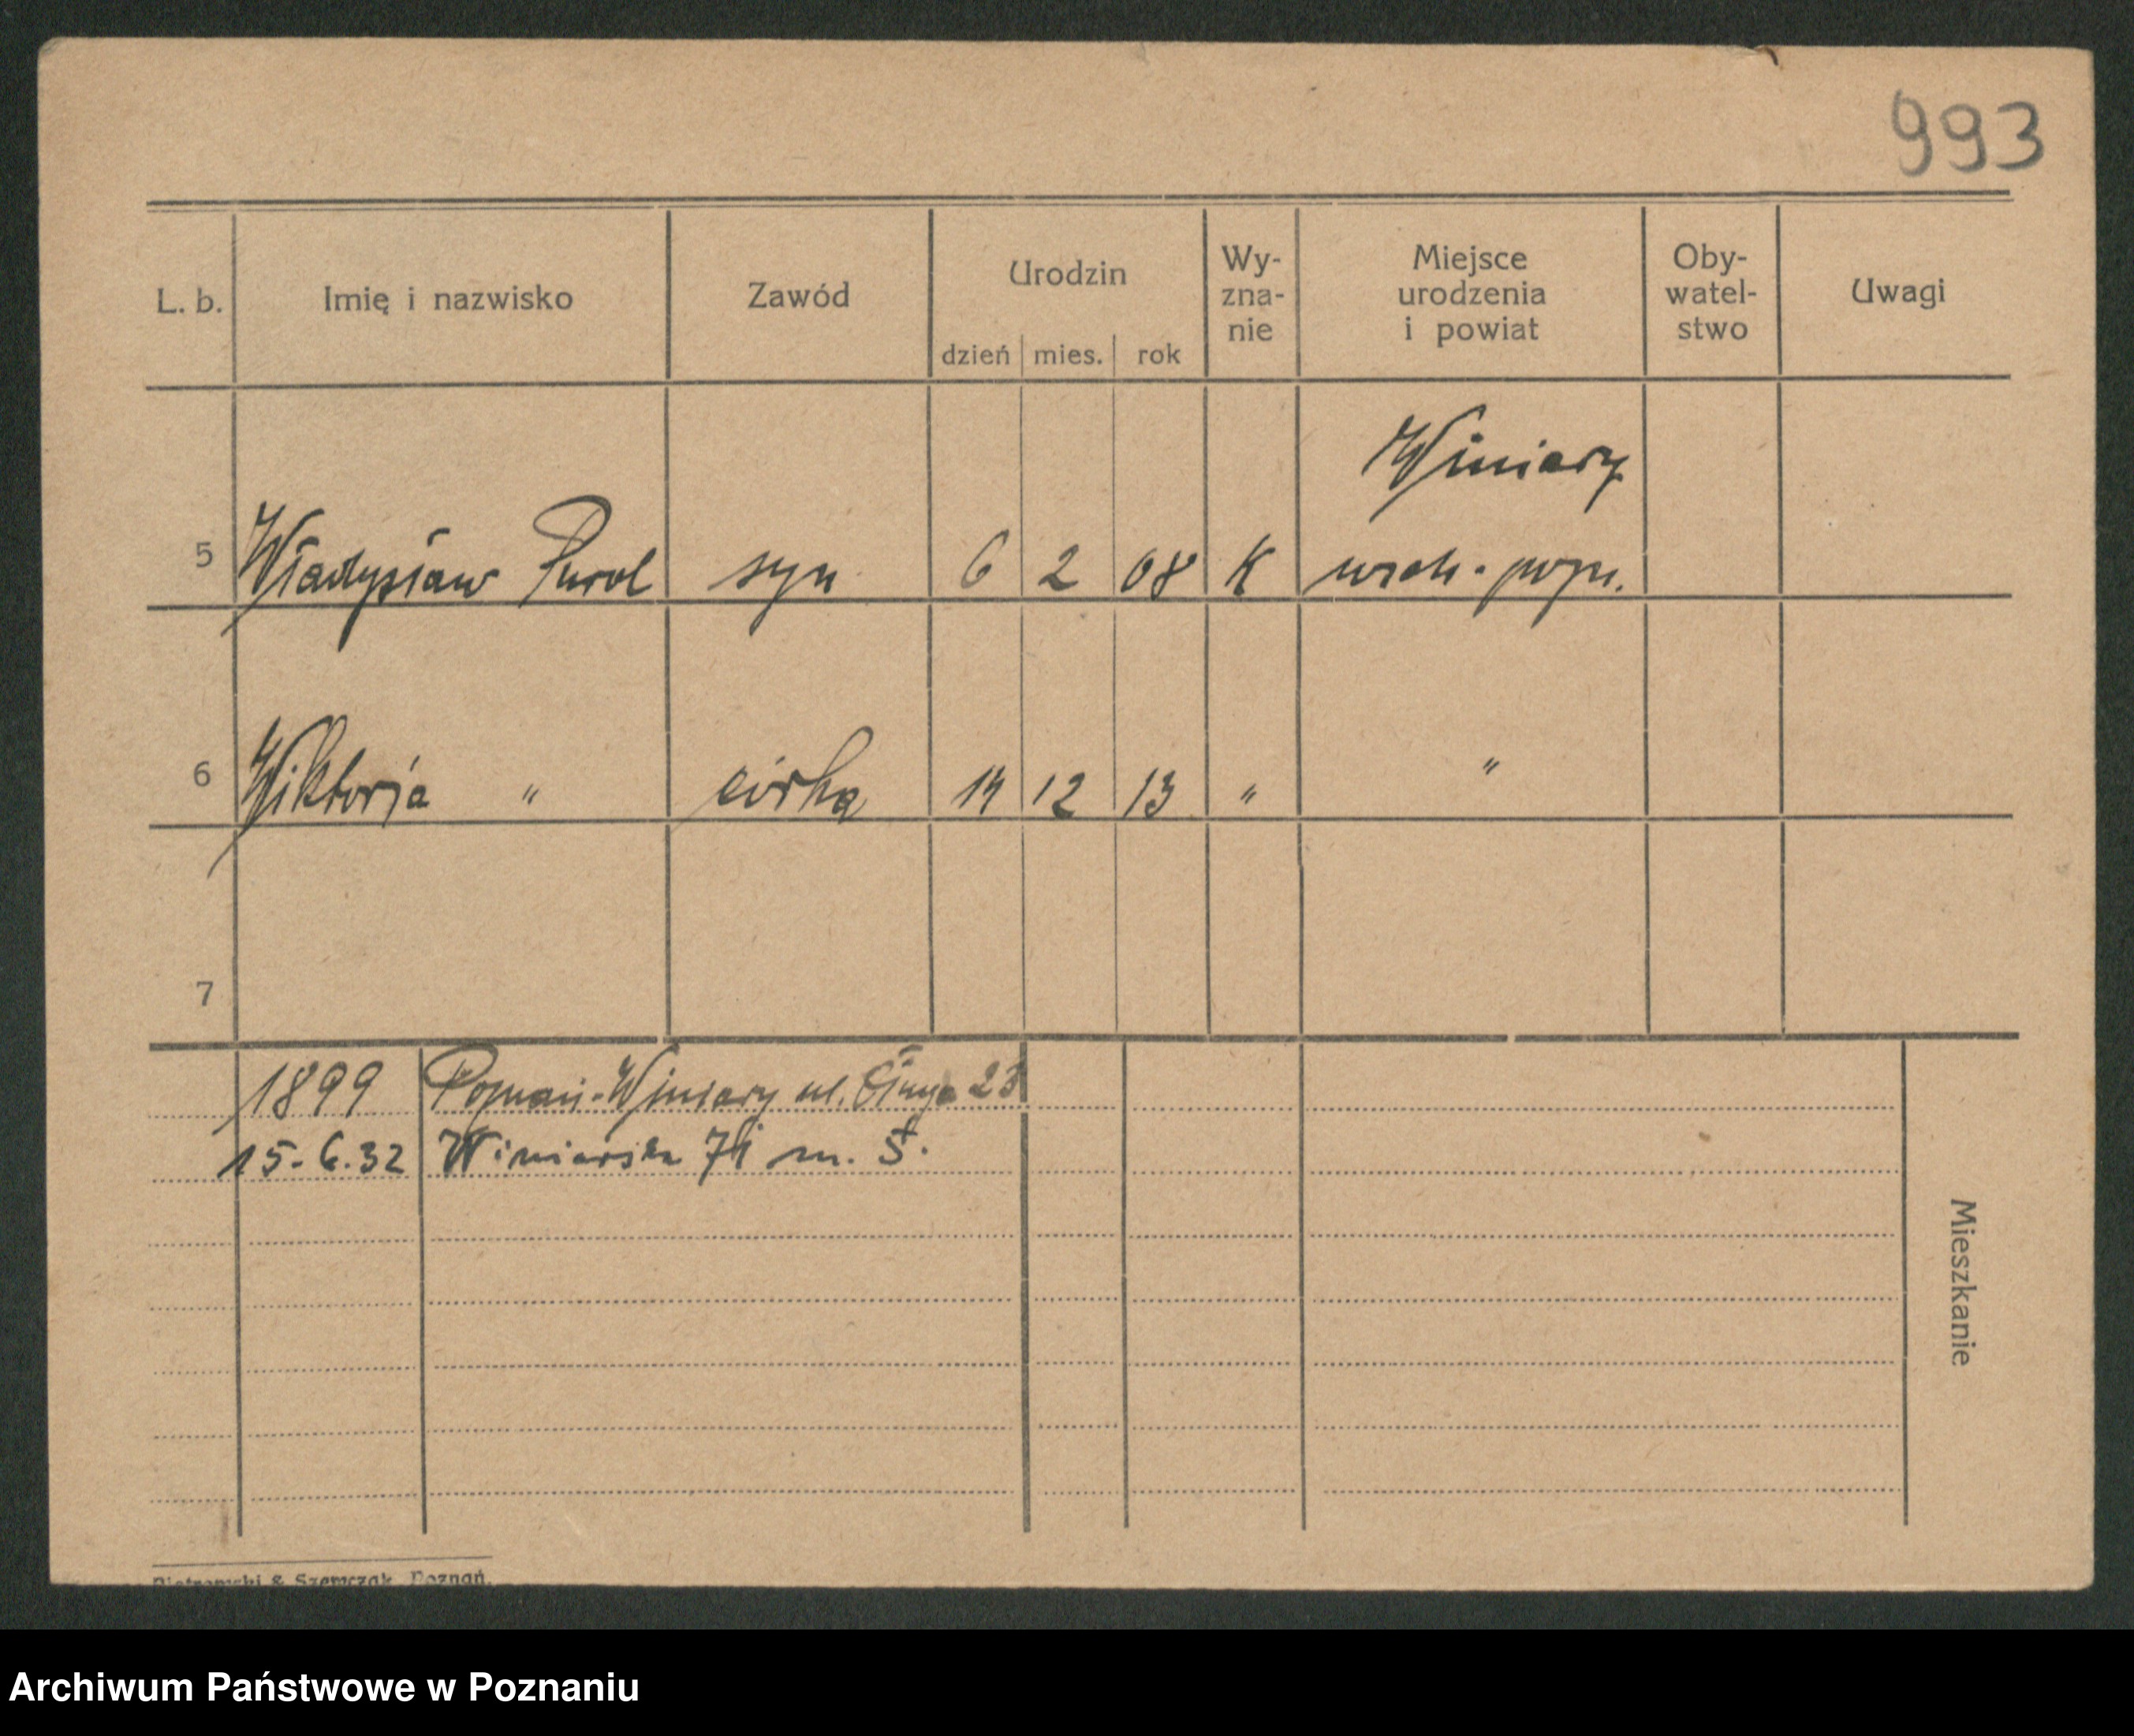 993
L. b. Imię i nazwisko Zawód Urodzin Wy- zna- nie Miejsce urodzenia i powiat Oby- watel- stwo Uwagi
dzień mies. rok
Winiary
5 Władysław Purol syn 6 2 08 K wsch. pozn.
6 Wiktorja " córka 14 12 13 " "
7
1899 Poznań-Winiary ul. 23
15.6.32 Winiarska 71 m. 5.
Mieszkanie
& Szemczak, Poznań.
Archiwum Państwowe w Poznaniu